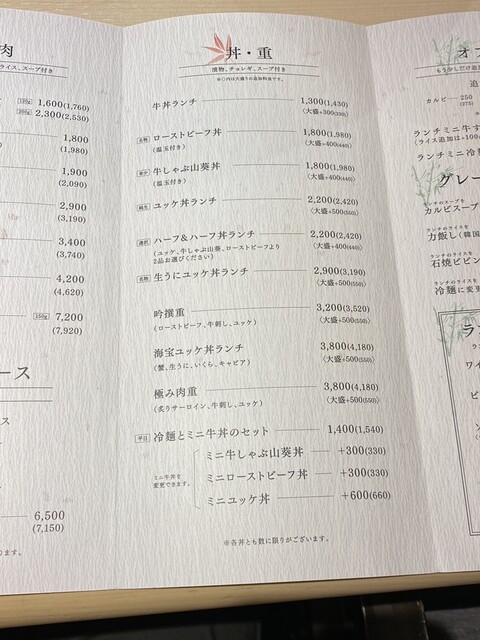 肉
ライス、スープ付き
120g 1,600(1,760)
200g 2,300(2,530)
1,800
(1,980)
1,900
(2,090)
2,900
(3,190)
3,400
(3,740)
4,200
(4,620)
150g 7,200
(7,920)
ース
ス
6,500
(7,150)
ります。
丼・重
漬物、チョレギ、スープ付き
※〈〉内は大盛りの追加料金です。
牛丼ランチ 1,300(1,430)
〈大盛+300(330)〉
名物 ローストビーフ丼 1,800(1,980)
(温玉付き) 〈大盛+400(440)〉
牛しゃぶ山葵丼 1,800(1,980)
(温玉付き) 〈大盛+400(440)〉
ユッケ丼ランチ 2,200(2,420)
〈大盛+500(550)〉
選択 ハーフ&ハーフ丼ランチ 2,200(2,420)
(ユッケ、牛しゃぶ山葵、ローストビーフより
2品お選びください) 〈大盛+400(440)〉
名物 生うにユッケ丼ランチ 2,900(3,190)
〈大盛+500(550)〉
吟撰重 3,200(3,520)
(ローストビーフ、牛刺し、ユッケ) 〈大盛+500(550)〉
海宝ユッケ丼ランチ 3,800(4,180)
(蟹、生うに、いくら、キャビア) 〈大盛+500(550)〉
極み肉重 3,800(4,180)
(炙りサーロイン、牛刺し、ユッケ) 〈大盛+500(550)〉
平日 冷麺とミニ牛丼のセット 1,400(1,540)
ミニ牛丼を
変更できます。
ミニ牛しゃぶ山葵丼 +300(330)
ミニローストビーフ丼 +300(330)
ミニユッケ丼 +600(660)
※各丼とも数に限りがございます。
オプ
もう少しだけ追
追
カルビ 250
(275)
ランチミニ牛す
(ライス追加は+100
ランチミニ冷麺
グレー
ランチのスープを
カルビスープ
ランチのライスを
力飯し(韓国
ランチのライスを
石焼ビビン
ランチのライスを
冷麺に変更
ラン
ワイ
ビ